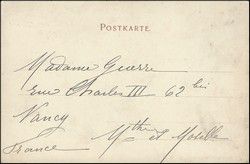 POSTKARTE.
Madame Guerre
Rue Charles III 62 bis
Nancy
Mthe et Moselle
France